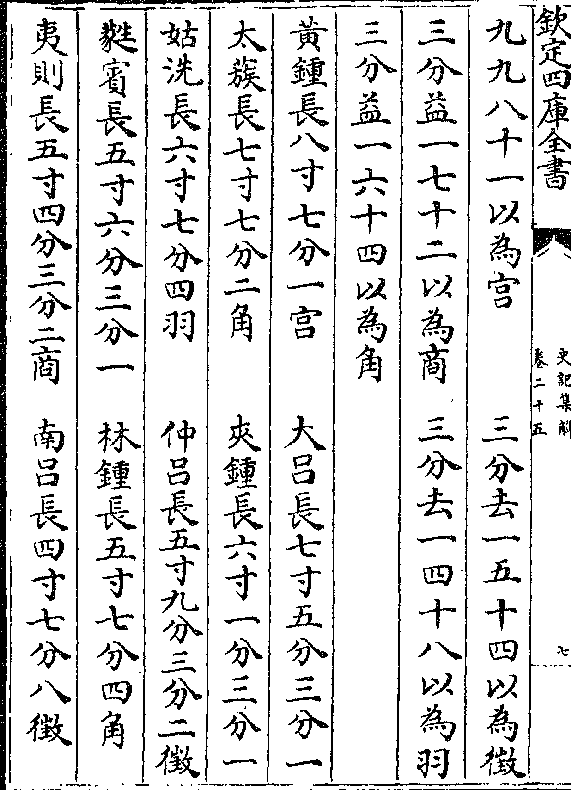 欽定四庫全書
史記集解
卷二十五
七
九九八十一以為宫 三分去一五十四以為徴
三分益一七十二以為商 三分去一四十八以為羽
三分益一六十四以為角
黃鍾長八寸七分一宫 大吕長七寸五分三分一
太蔟長七寸七分二角 夾鍾長六寸一分三分一
姑洗長六寸七分四羽 仲吕長五寸九分三分二徴
蕤賓長五寸六分三分一 林鍾長五寸七分四角
夷則長五寸四分三分二商 南吕長四寸七分八徴